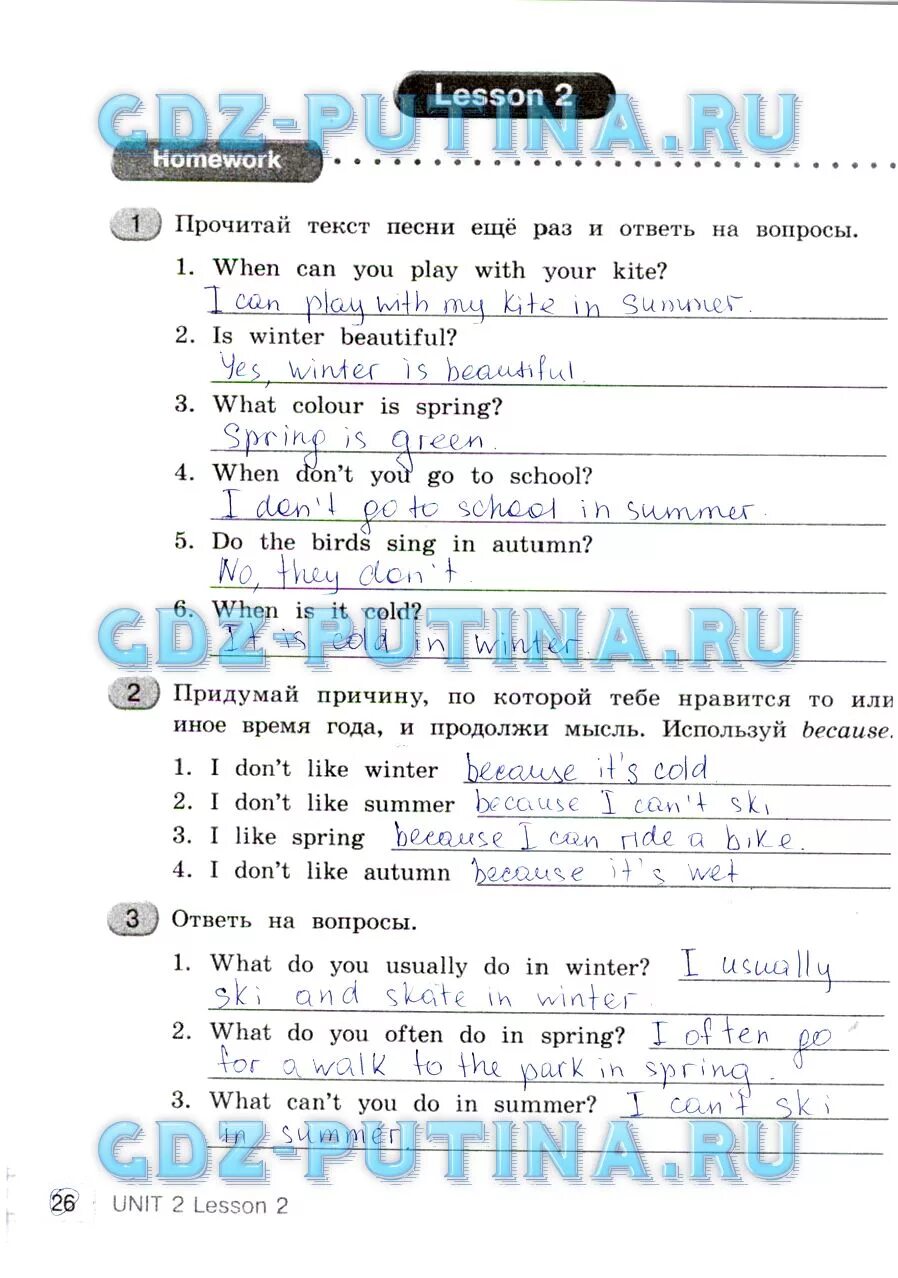 Lesson 2
GDZ-PUTINA.RU
Homework
1 Прочитай текст песни ещё раз и ответь на вопросы.
1. When can you play with your kite?
I can play with my kite in summer.
2. Is winter beautiful?
Yes, winter is beautiful.
3. What colour is spring?
Spring is green.
4. When don't you go to school?
I don't go to school in summer.
5. Do the birds sing in autumn?
No, they don't.
6. When is it cold?
GDZ-PUTINA.RU
It is cold in winter.
2 Придумай причину, по которой тебе нравится то или
иное время года, и продолжи мысль. Используй because.
1. I don't like winter because it's cold
2. I don't like summer because I can't ski
3. I like spring because I can ride a bike.
4. I don't like autumn because it's wet
3 Ответь на вопросы.
1. What do you usually do in winter? I usually
ski and skate in winter.
2. What do you often do in spring? I often go
for a walk to the park in spring.
3. What can't you do in summer? I can't ski
in summer.
GDZ-PUTINA.RU
26 UNIT 2 Lesson 2